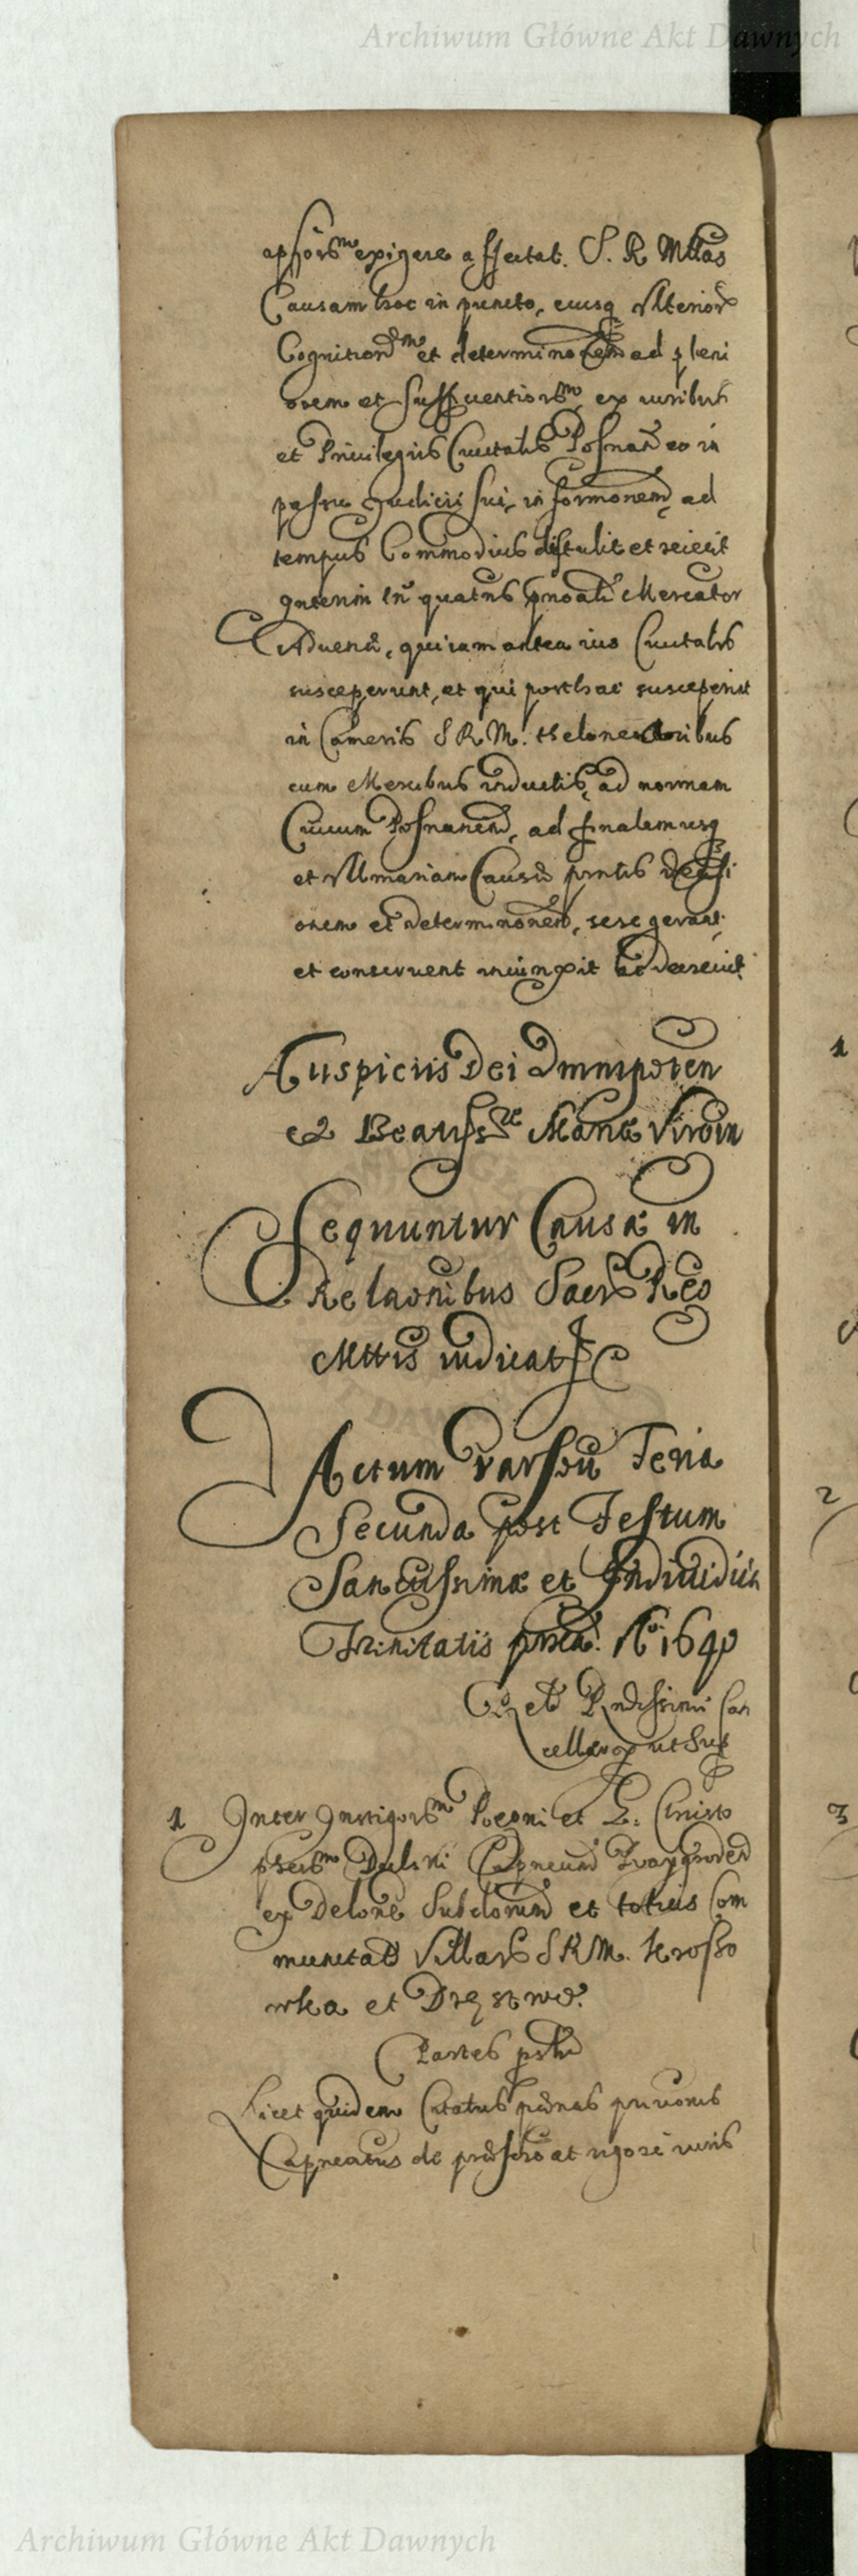 Archiwum Główne Akt Dawnych
exigere affectat. S. R. Mttas
Causam hoc in puncto, eiusq ulterior
Cognition et determinonem ad pleni
orem et sufficientiorem ex iuribus
et Privilegiis Civitatis Posnan eo in
passu Judicii sui informonem ad
tempus Commodius distulit et reiecit
Interim tn quatnus Mercator
Advenae, qui iam antea ius Civitatis
susceperunt, et qui posthac susceperint
in Cameris S R M. theloneatoribus
cum Mercibus inductis, ad normam
Civium Posnanien, ad finalem usq
et ultimariam Causae pntis decisi
onem et determinonem, sese gerant
et conservent iniunxit ac decrevit
Auspiciis Dei Omnipoten
et Beatiss Mariae Virgin
Sequuntur Causae in
Relaonibus Sacr Reg
Mttis iudicat
Actum Varsov Feria
Secunda post Festum
Sanctissimae et Individuae
Trinitatis Ao 1640
et Rndissimi Can
cellar ut Sup
1 Inter Instigorem et G. Christo
pherum Capneum
ex Delone Subditorum et totius Com
munitat Villar S R M. Krosno
wka et
Partes
Licet quidem Citatus poenas privonis
Capneatus de at rigore iuris
1
2
3
Archiwum Główne Akt Dawnych